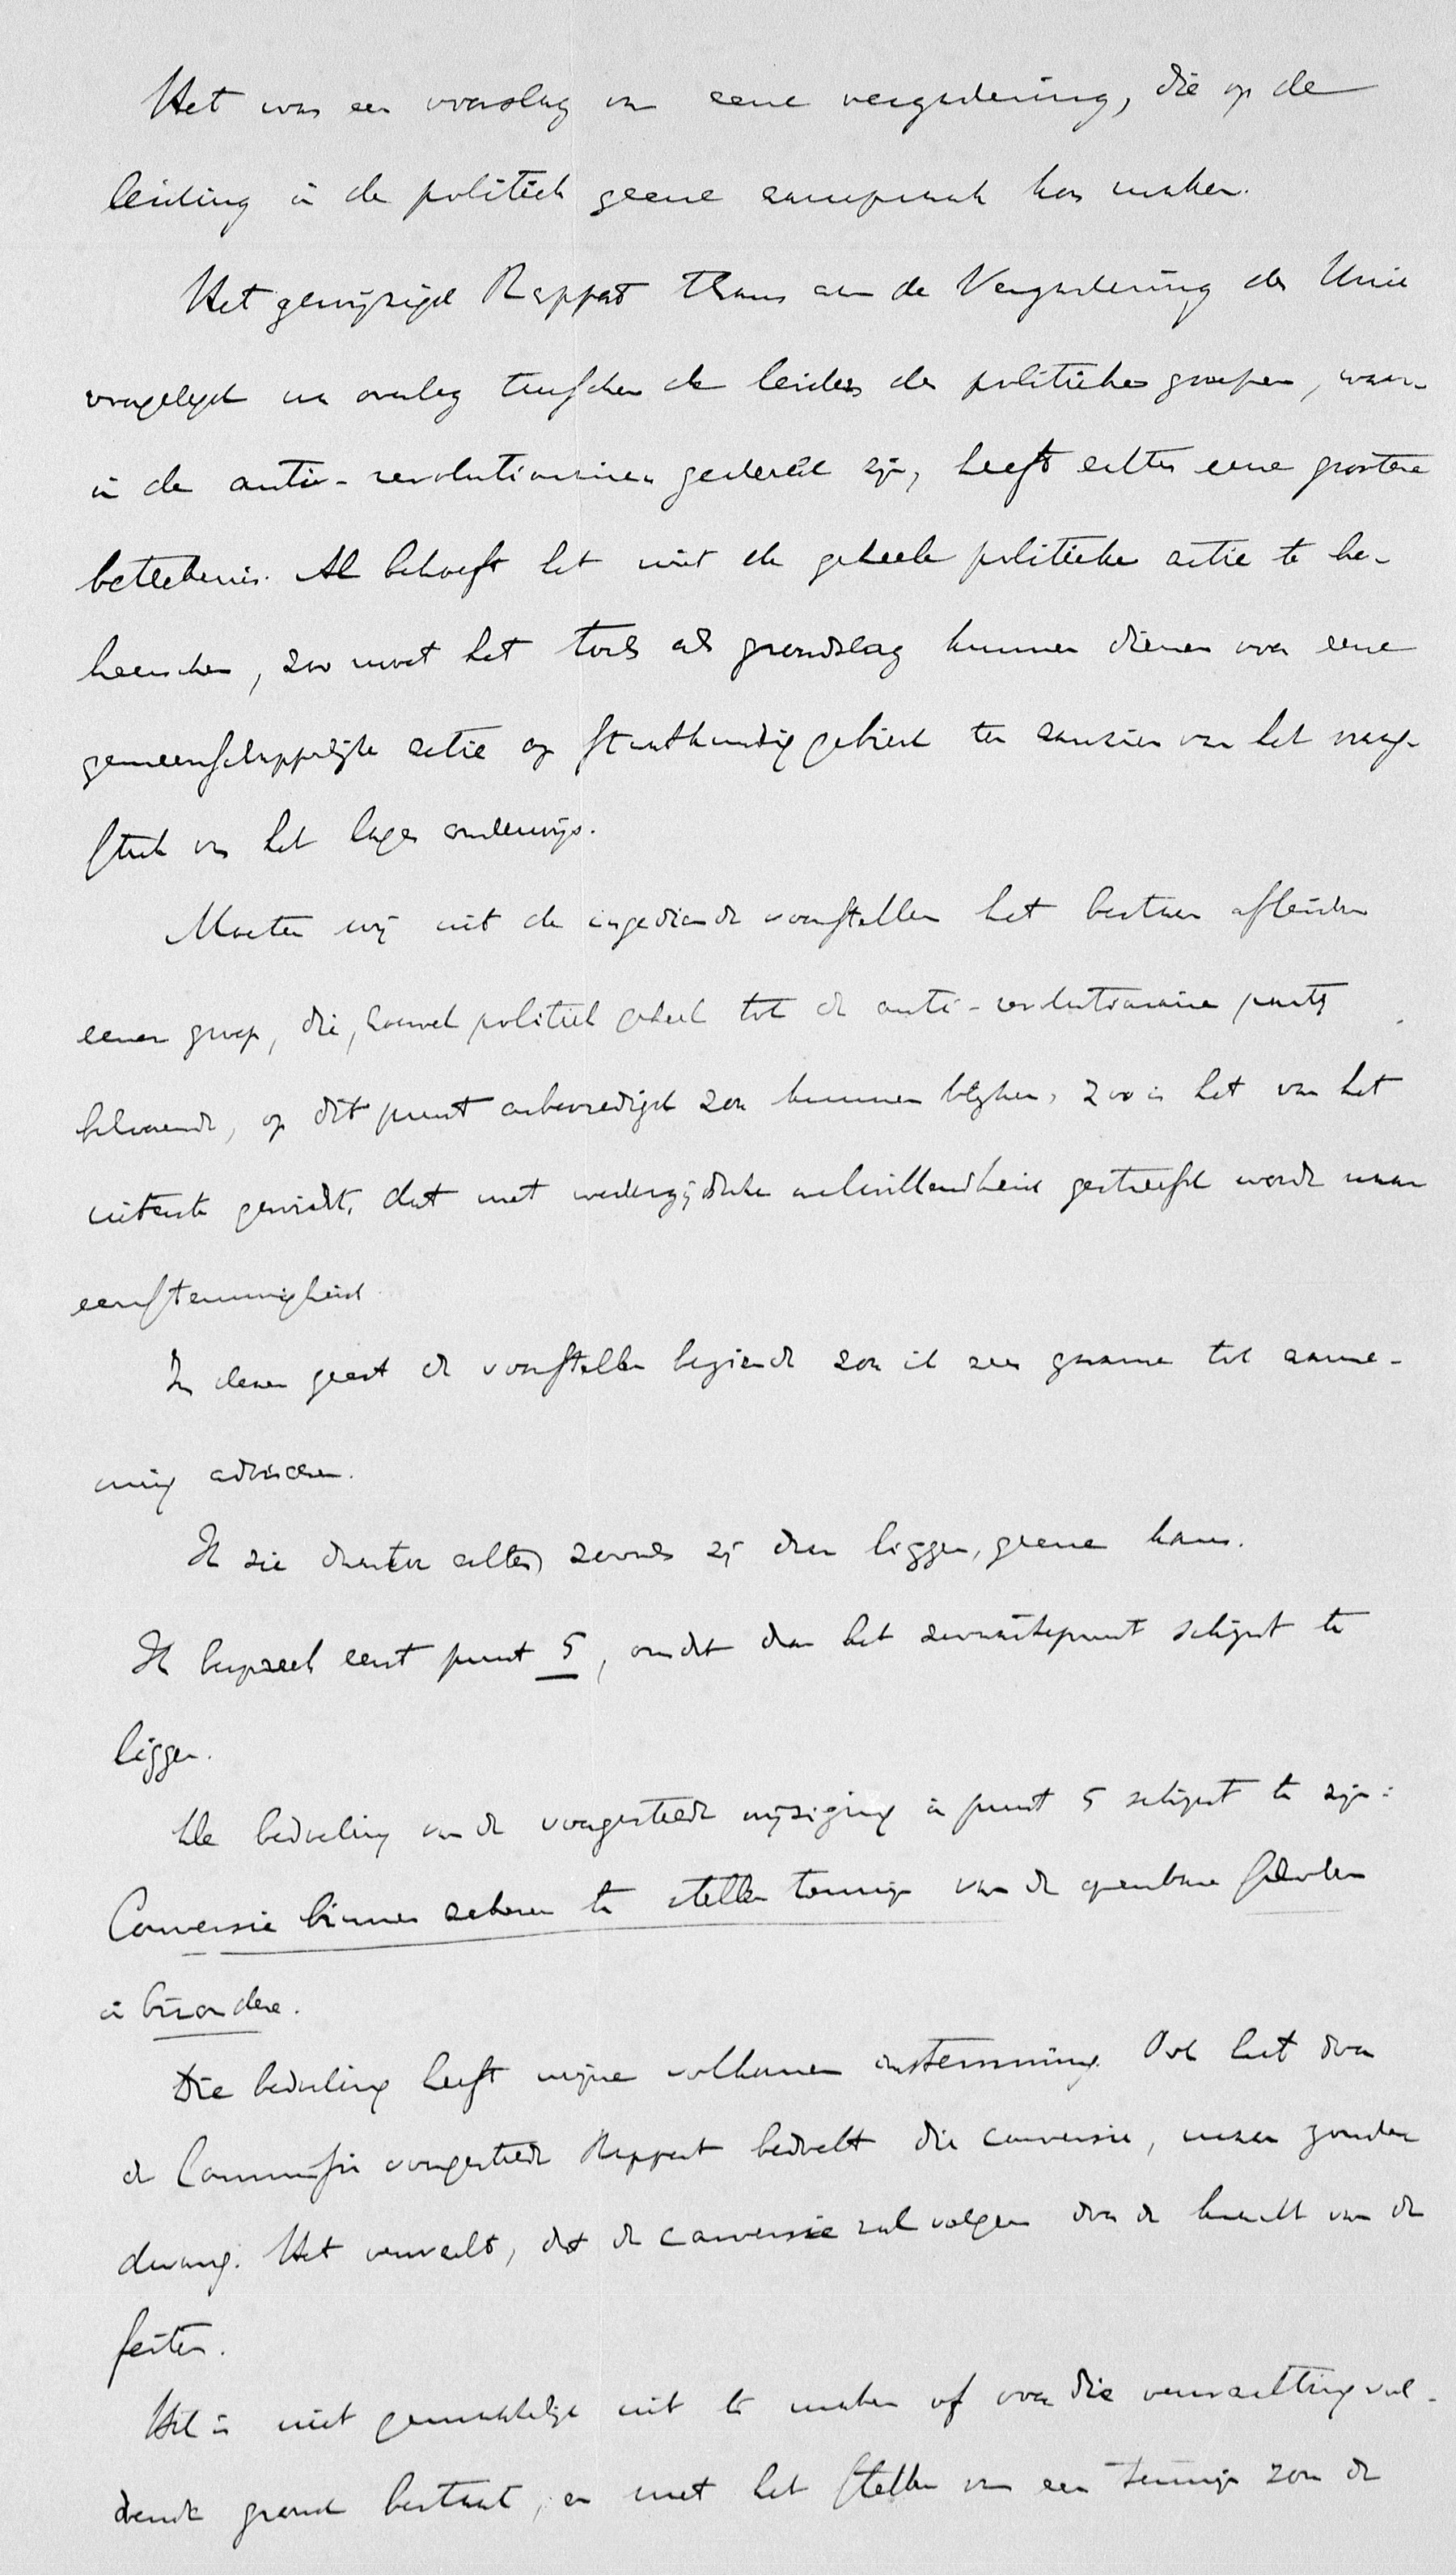 Het was een voorslag van eene vergadering, die op de
leiding in de politiek geene aanspraak kon maken.
Het gewijzigd Rapport thans aan de Vergadering der Unie
voorgelegd na overleg tusschen de leiders der politieke groepen, waar-
in de anti-revolutionairen gedeeld zijn, heeft echter eene grootere
beteekenis. Al behoeft het niet de geheele politieke actie te be-
heerschen, zoo moet het toch als grondslag kunnen dienen voor eene
gemeenschappelijke actie op staatkundig gebied ten aanzien van het vraag-
stuk van het lager onderwijs.
Moeten wij uit de ingediende voorstellen het bestaan afleiden
eener groep, die, hoewel politiek geheel tot de anti-revolutionaire partij
behoorende, op dit punt onbevredigd zou kunnen blijken, zoo is het van het
uiterste gewicht, dat met wederzijdsche welwillendheid gestreefd worde naar
eenstemmigheid.
In dezen geest de voorstellen beziende zou ik zeer gaarne tot aanne-
ming adviseeren.
Ik zie daartoe echter, zooals zij daar liggen, geene kans.
Ik bespreek eerst punt 5, omdat daar het zwaartepunt schijnt te
liggen.
De bedoeling van de voorgestelde wijziging in punt 5 schijnt te zijn:
Conversie binnen zekeren te stellen termijn van de openbare scholen
in bizondere.
Die bedoeling heeft mijne volkomen instemming. Ook het door
de Commissie voorgestelde Rapport bedoelt die conversie, maar zonder
dwang. Het verwacht, dat de conversie zal volgen door de kracht van de
feiten.
Het is niet gemakkelijk uit te maken of voor die verwachting vol-
doende grond bestaat, en met het stellen van een termijn zou de